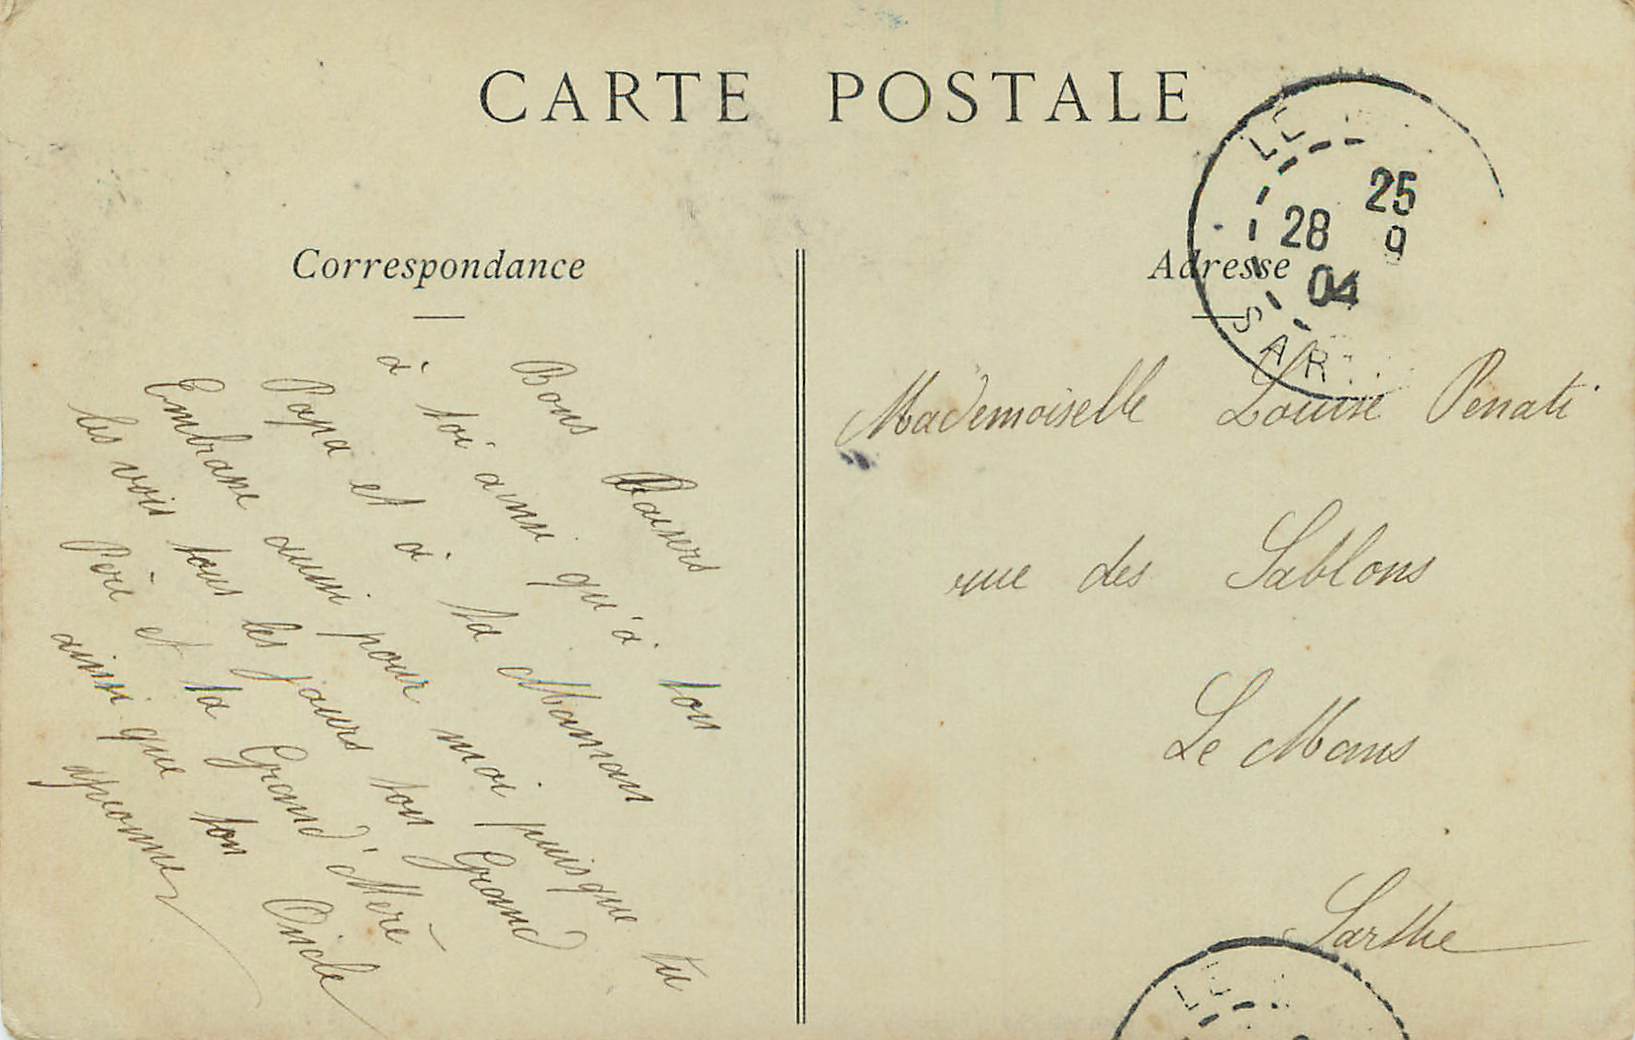 CARTE POSTALE
Correspondance
Bons Baisers
à toi ainsi qu'à ton
Papa et à ta Maman
Embrasse aussi pour moi puisque tu
les vois tous les jours ton Grand
Père et ta Grand'Mère
ainsi que ton Oncle
Adresse
Mademoiselle Louise Penati
rue des Sablons
Le Mans
Sarthe
LE
25
28 9
04
SAR
LE